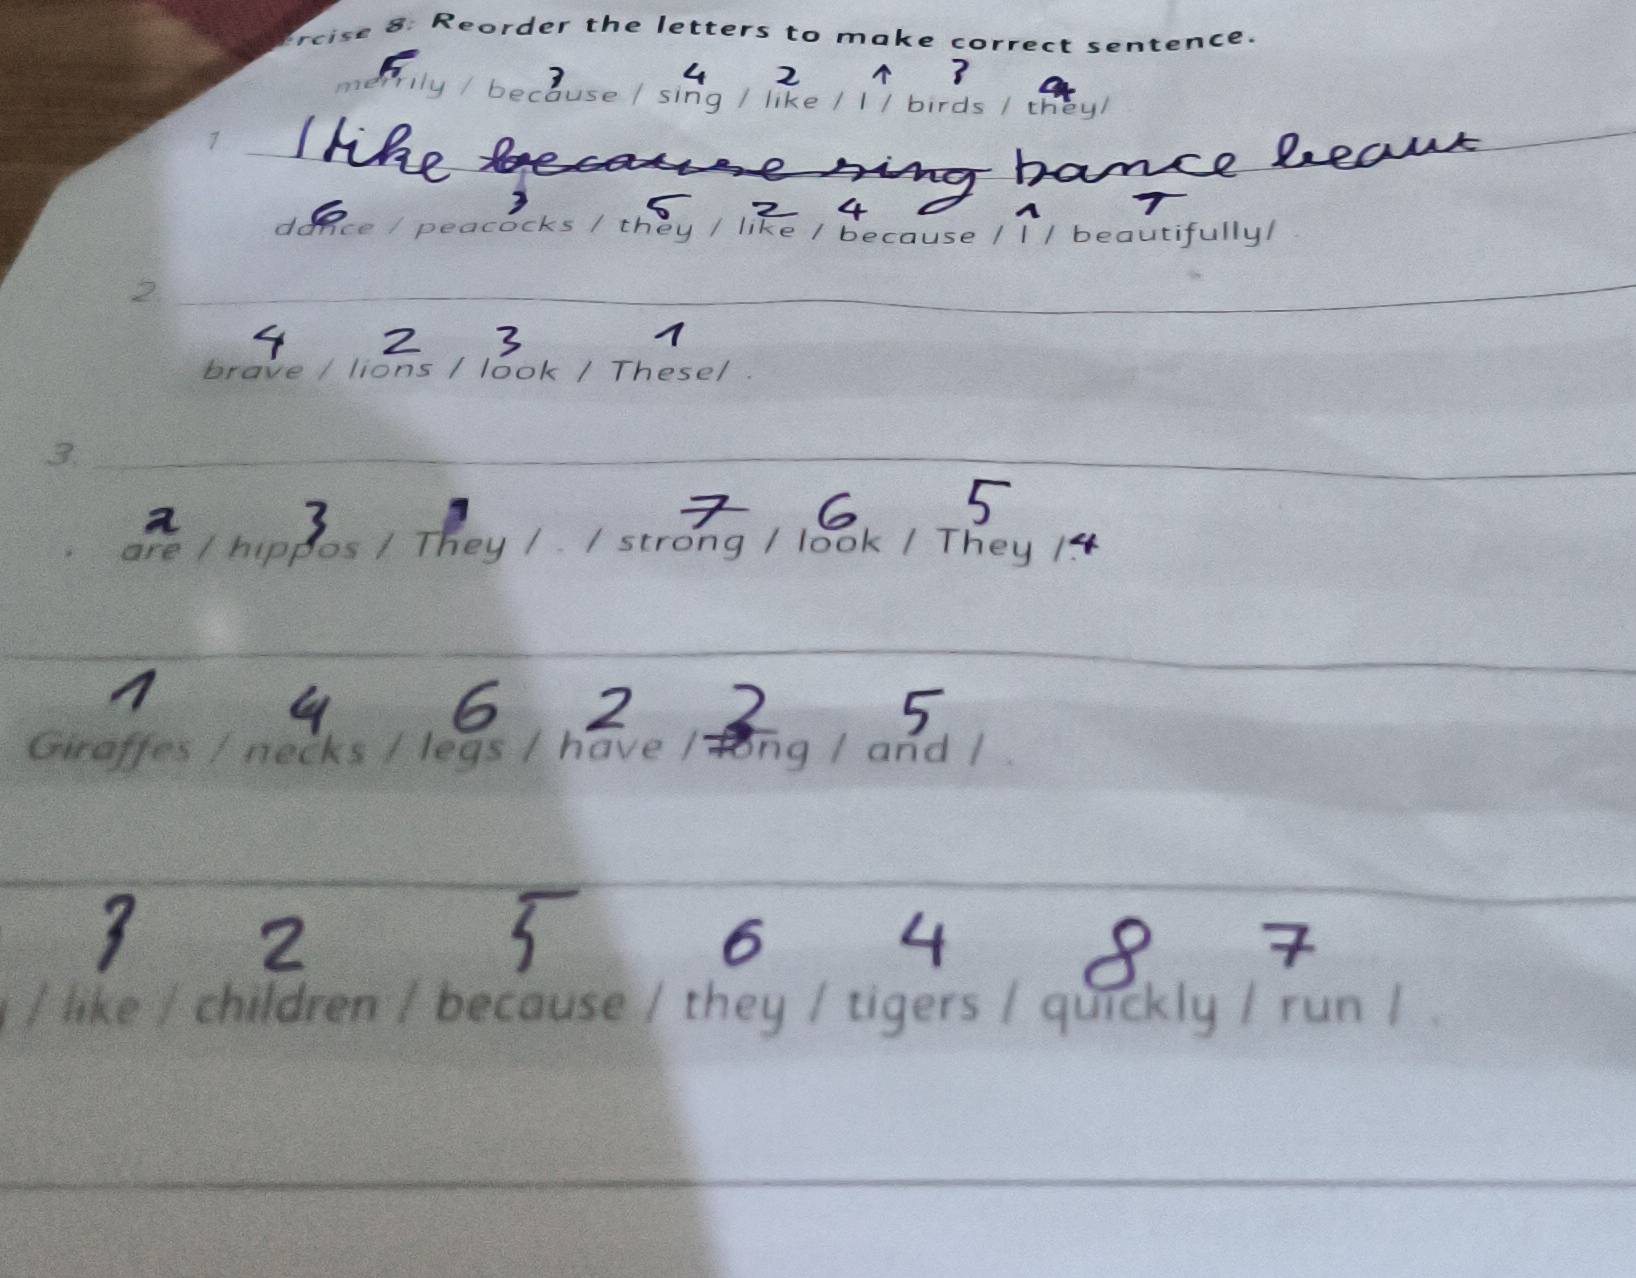 ercise 8: Reorder the letters to make correct sentence.
5 3 4 2 1 3 4
merrily / because / sing / like / I / birds / they/
1 I like because sing bance beaut
6 3 5 2 4 1 7
dance / peacocks / they / like / because / I / beautifully/ .
2.
4 2 3 1
brave / lions / look / These/ .
3.
2 3 1 7 6 5
. are / hippos / They / . / strong / look / They /. 4
1 4 6 2 3 5
Giraffes / necks / legs / have / long / and / .
3 2 5 6 4 8 7
/ like / children / because / they / tigers / quickly / run / .